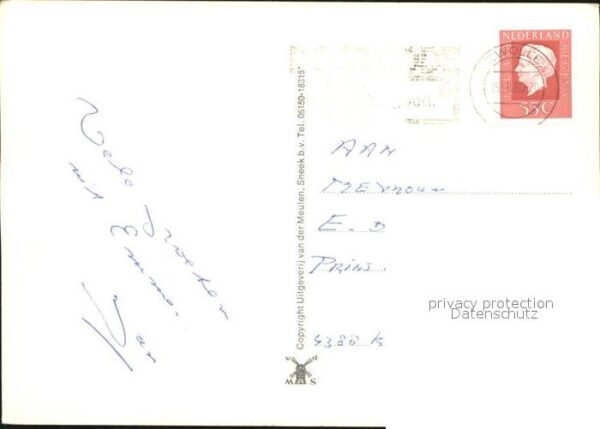 Vele groeten
uit Emmen.
Jan
Copyright Uitgeverij van der Meulen, Sneek b.v. Tel. 05150-18315*
V D
M S
NEDERLAND
REGINA
55 C
ZWOLLE
AAN
MEVROUW
E. D
PRINS.
privacy protection
Datenschutz